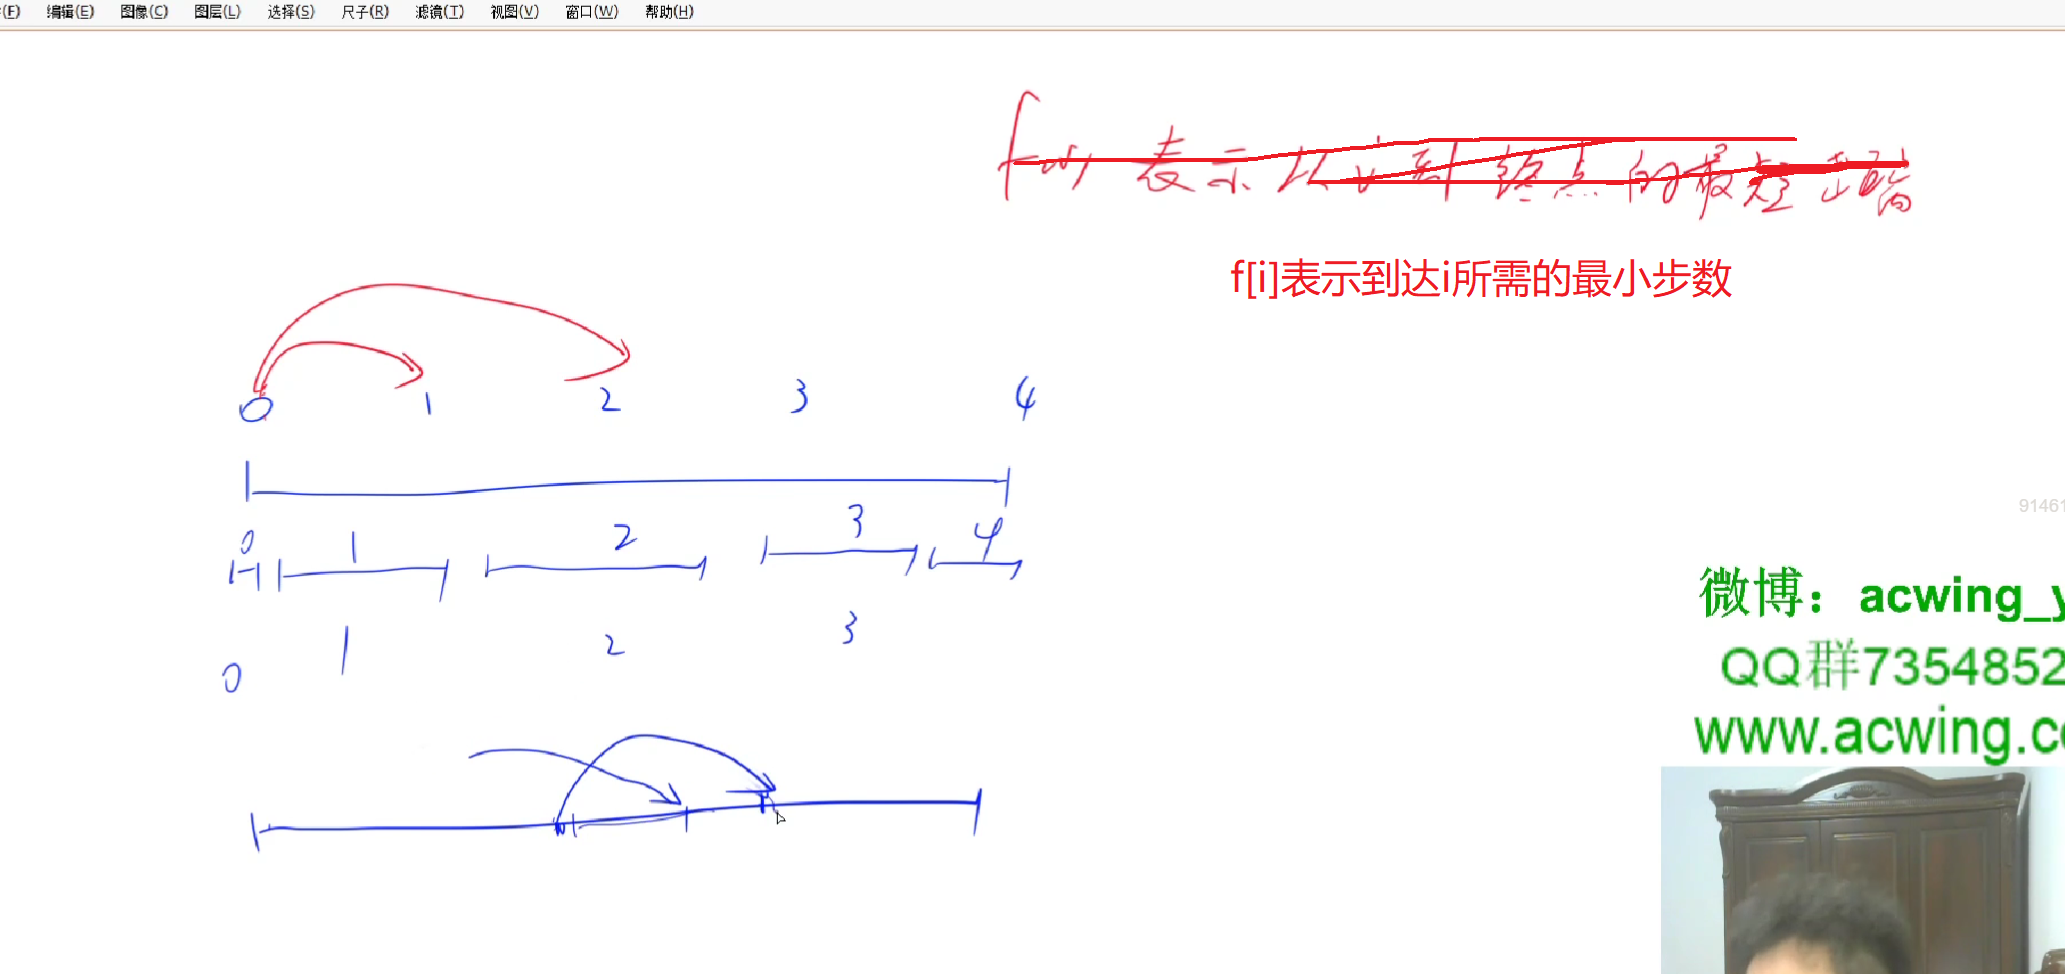 (F) 编辑(E) 图像(C) 图层(L) 选择(S) 尺子(R) 滤镜(T) 视图(V) 窗口(W) 帮助(H)
f(i) 表示从i到终点的最短步
f[i]表示到达i所需的最小步数
0 1 2 3 4
0 1 2 3 4
0 1 2 3
91461
微博：acwing_y
QQ群7354852
www.acwing.c